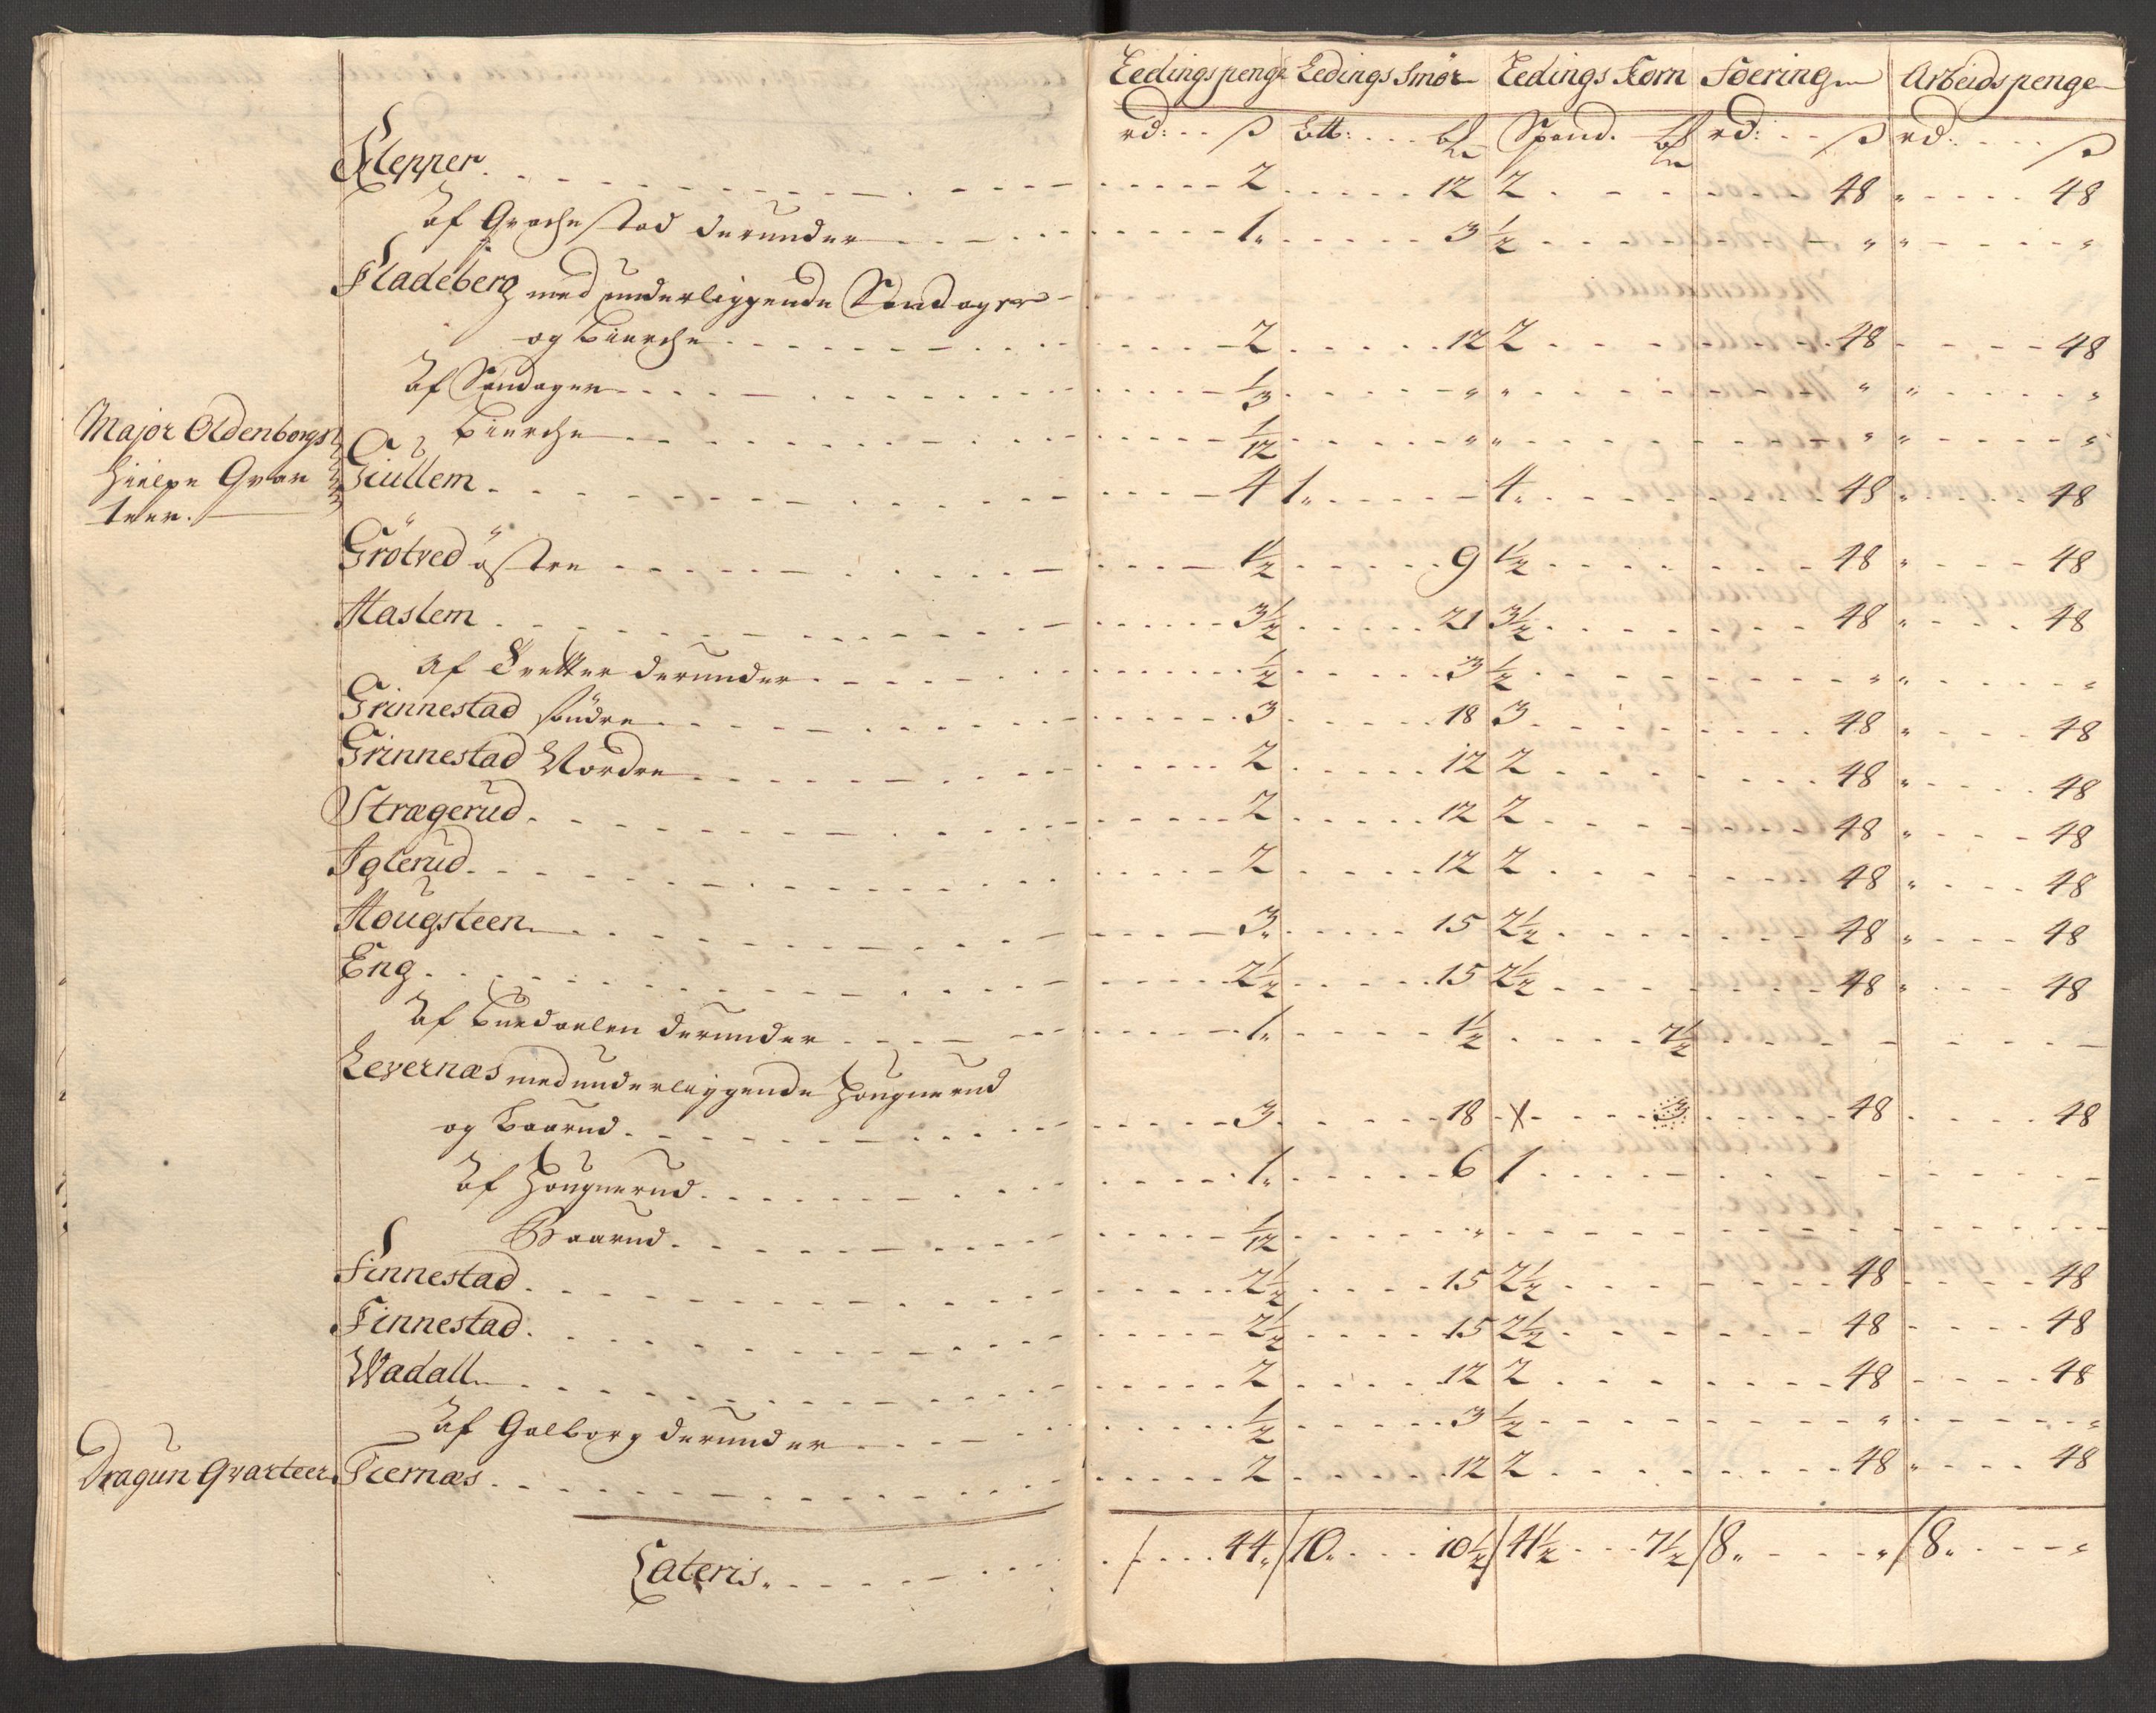 Leedingspenge Leedings Smör Leedings Korn Foeringen Arbeidspenge
rd: ß Ltt: Spand. rd: ß rd. ß
Klepper. 2 12 2 48 " 48
Af derunder 1. 3 ½ " " "
Fladeberg med underliggende Sændager
og Bierche 2 12 2 48 48
Af Sændager ⅓ " " " " "
Bierche 1/12 " " " " "
Major Oldenborgs Giullem 4 1. 4. 48 " 48
Hielpe Qvar
teer.
Grötved östre 1½ 9 1½ 48 " 48
Haslem 3½ 21 3½ 48 " 48
Af derunder ½ 3 ½ " " "
Grinnestad söndre 3 18 3 48 " 48
Grinnestad Nordre 2 12 2 48 " 48
Strægerud 2 12 2 48 " 48
Iglerud 2 12 2 48 " 48
Hougsteen 3. 15 2½ 48 " 48
Eng 2½ 15 2½ 48 " 48
Af derunder 1. 1½ 7½
Levernæs med underliggende Hougnerud
og Baarud 3 18 3 48 48
Af Hougnerud 1. 6 1
Baarud 1/12 "
Finnestad 2½ 15 2½ 48 48
Finnestad 2½ 15 2½ 48 48
Wadall 2 12 2 48 48
Af Galborg derunder ½ 3 ½ " "
Dragun Qvarteer Tiernæs 2 12 2 48 " 48
Lateris. 44. 10. 10½ 41½ 7½ 8. " 8. "